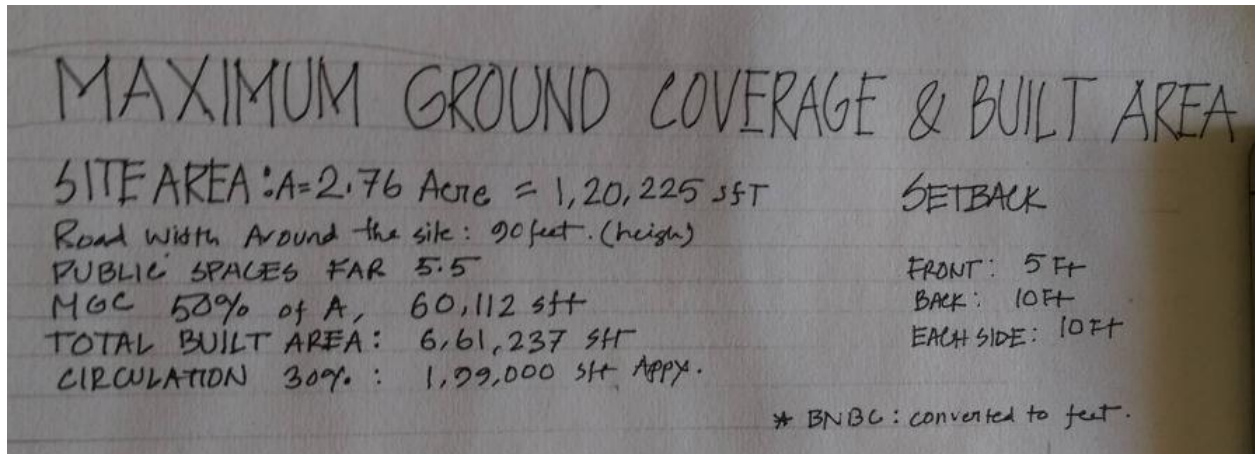 MAXIMUM GROUND COVERAGE & BUILT AREA
SITE AREA: A=2.76 Acre = 1,20,225 sfT
Road Width Around the site: 90 feet. (heigh)
PUBLIC SPACES FAR 5.5
MGC 50% of A, 60,112 sft
TOTAL BUILT AREA: 6,61,237 sft
CIRCULATION 30%. : 1,99,000 sft Appx.
SETBACK
FRONT: 5 Ft
BACK: 10 Ft
EACH SIDE: 10 Ft
* BNBC: converted to feet.